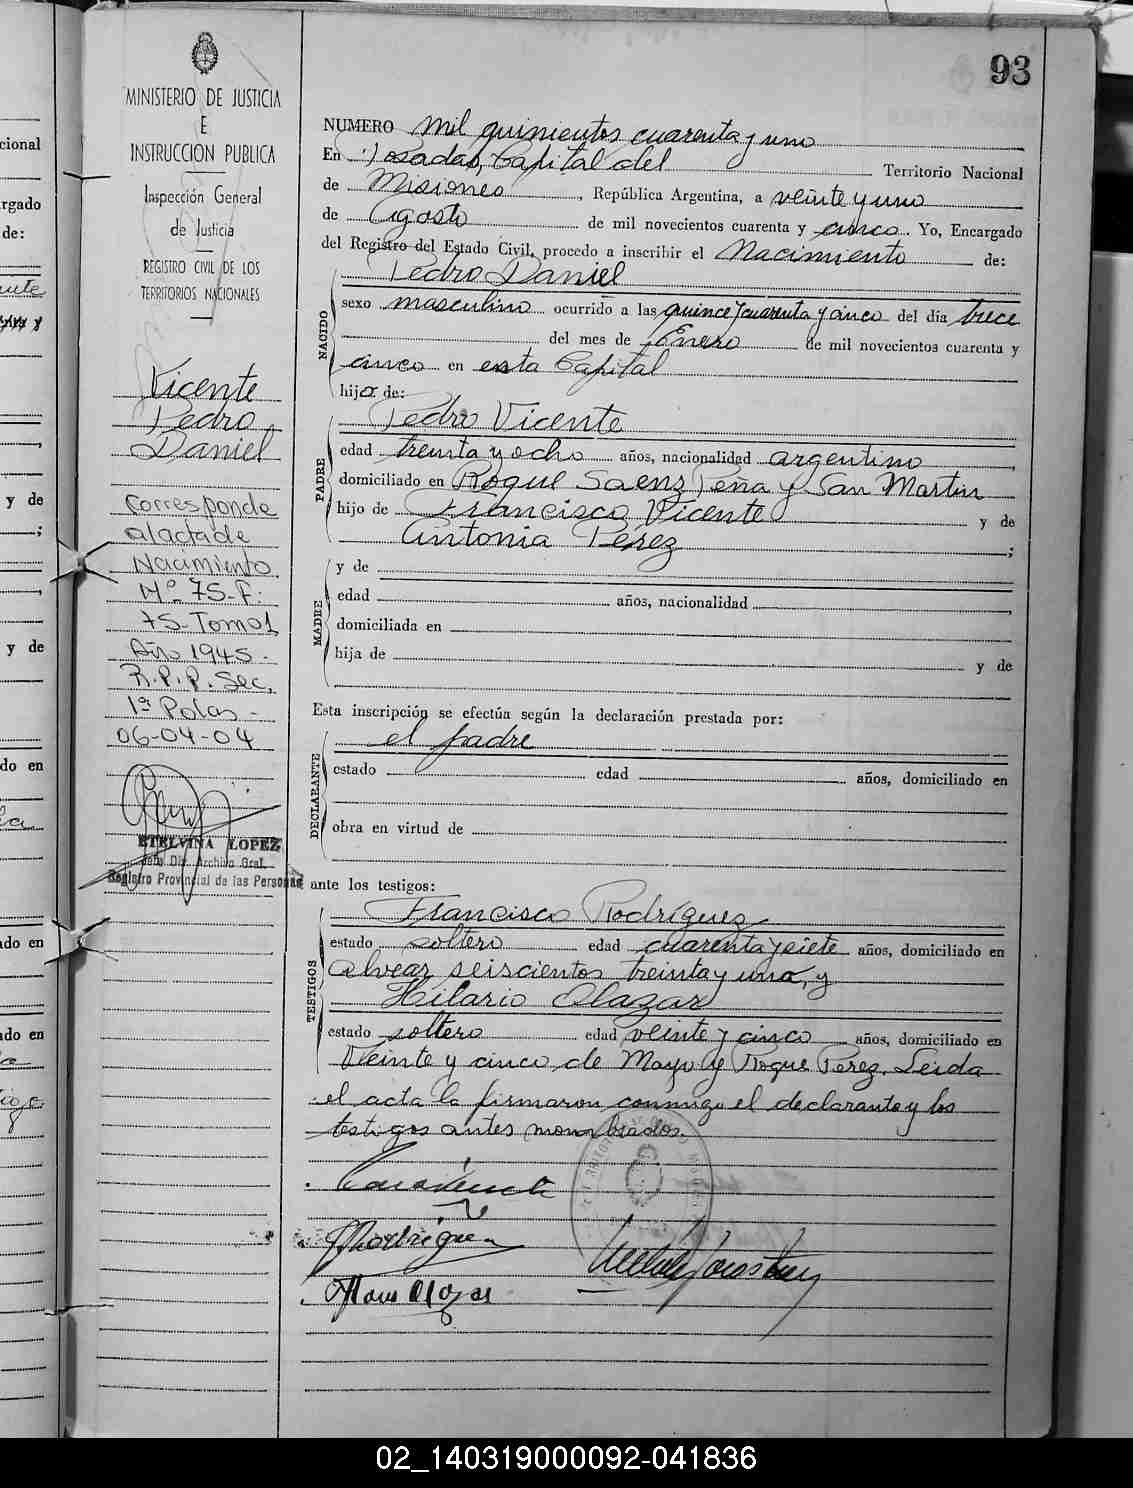 93
MINISTERIO DE JUSTICIA
E
INSTRUCCION PUBLICA
Inspección General
de Justicia
REGISTRO CIVIL DE LOS
TERRITORIOS NACIONALES
Vicente
Pedro
Daniel
corresponde
al acta de
Nacimiento
Nº 75-F:
75-Tomo1
Año 1945.
R.P.P. Sec.
1ª Pdas-
06-04-04
ETELVINA LOPEZ
Jefa Div. Archivo Gral.
Registro Provincial de las Personas
NUMERO mil quinientos cuarenta y uno
En Posadas, Capital del Territorio Nacional
de Misiones, República Argentina, a veinte y uno
de Agosto de mil novecientos cuarenta y cinco. Yo, Encargado
del Registro del Estado Civil, procedo a inscribir el Nacimiento de:
NACIDO
Pedro Daniel
sexo masculino ocurrido a las quince y cuarenta y cinco del día trece
del mes de Enero de mil novecientos cuarenta y
cinco en esta Capital
hijo de:
PADRE
Pedro Vicente
edad treinta y ocho años, nacionalidad argentino,
domiciliado en Roque Saenz Peña y San Martin
hijo de Francisco Vicente y de
Antonia Pérez;
MADRE
y de
edad años, nacionalidad,
domiciliada en
hija de y de
Esta inscripción se efectúa según la declaración prestada por:
DECLARANTE
el padre
estado edad años, domiciliado en
obra en virtud de
ante los testigos:
TESTIGOS
Francisco Rodríguez
estado soltero edad cuarenta y siete años, domiciliado en
Alvear seiscientos treinta y uno, y
Hilario Olazar
estado soltero edad veinte y cinco años, domiciliado en
Veinte y cinco de Mayo y Roque Perez. Leida
el acta la firmaron conmigo el declarante y los
testigos antes monbrados.
FRodriguez
Olazar
cional
rgado
de:
y de
;
y de
do en
do en
do en
02_140319000092-041836